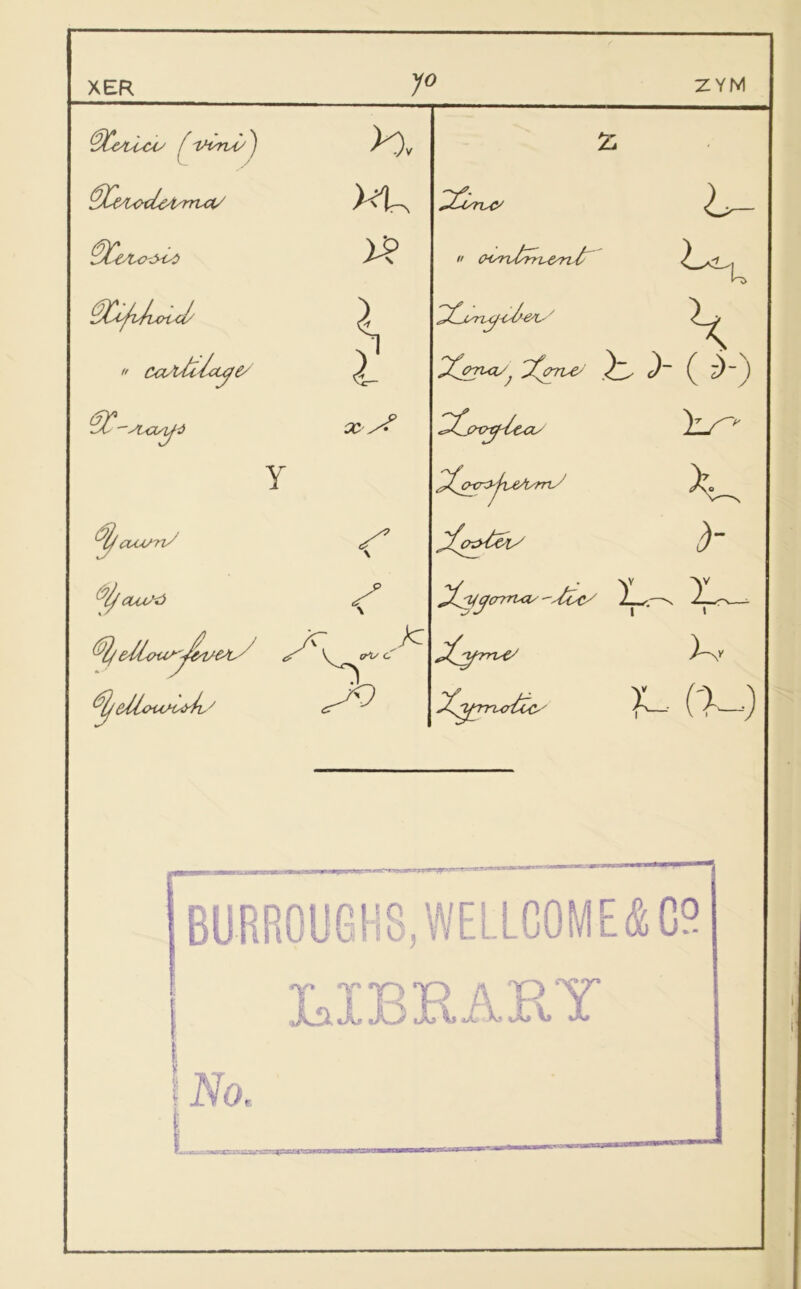 XER 70 ZYM
Xerica (vini)
Xeroderma
Xerosis
Xiphoid
" cartilage
X-rays
Y
Yawn
Yaws
Yellow-fever or
Yellowish
Z
Zinc
" ointment
Zingiber
Zona, Zone
Zooglea
Zoosperm
Zoster
Zygoma-tic
Zyme
Zymotic
BURROUGHS, WELLCOME & Co.
LIBRARY
No.